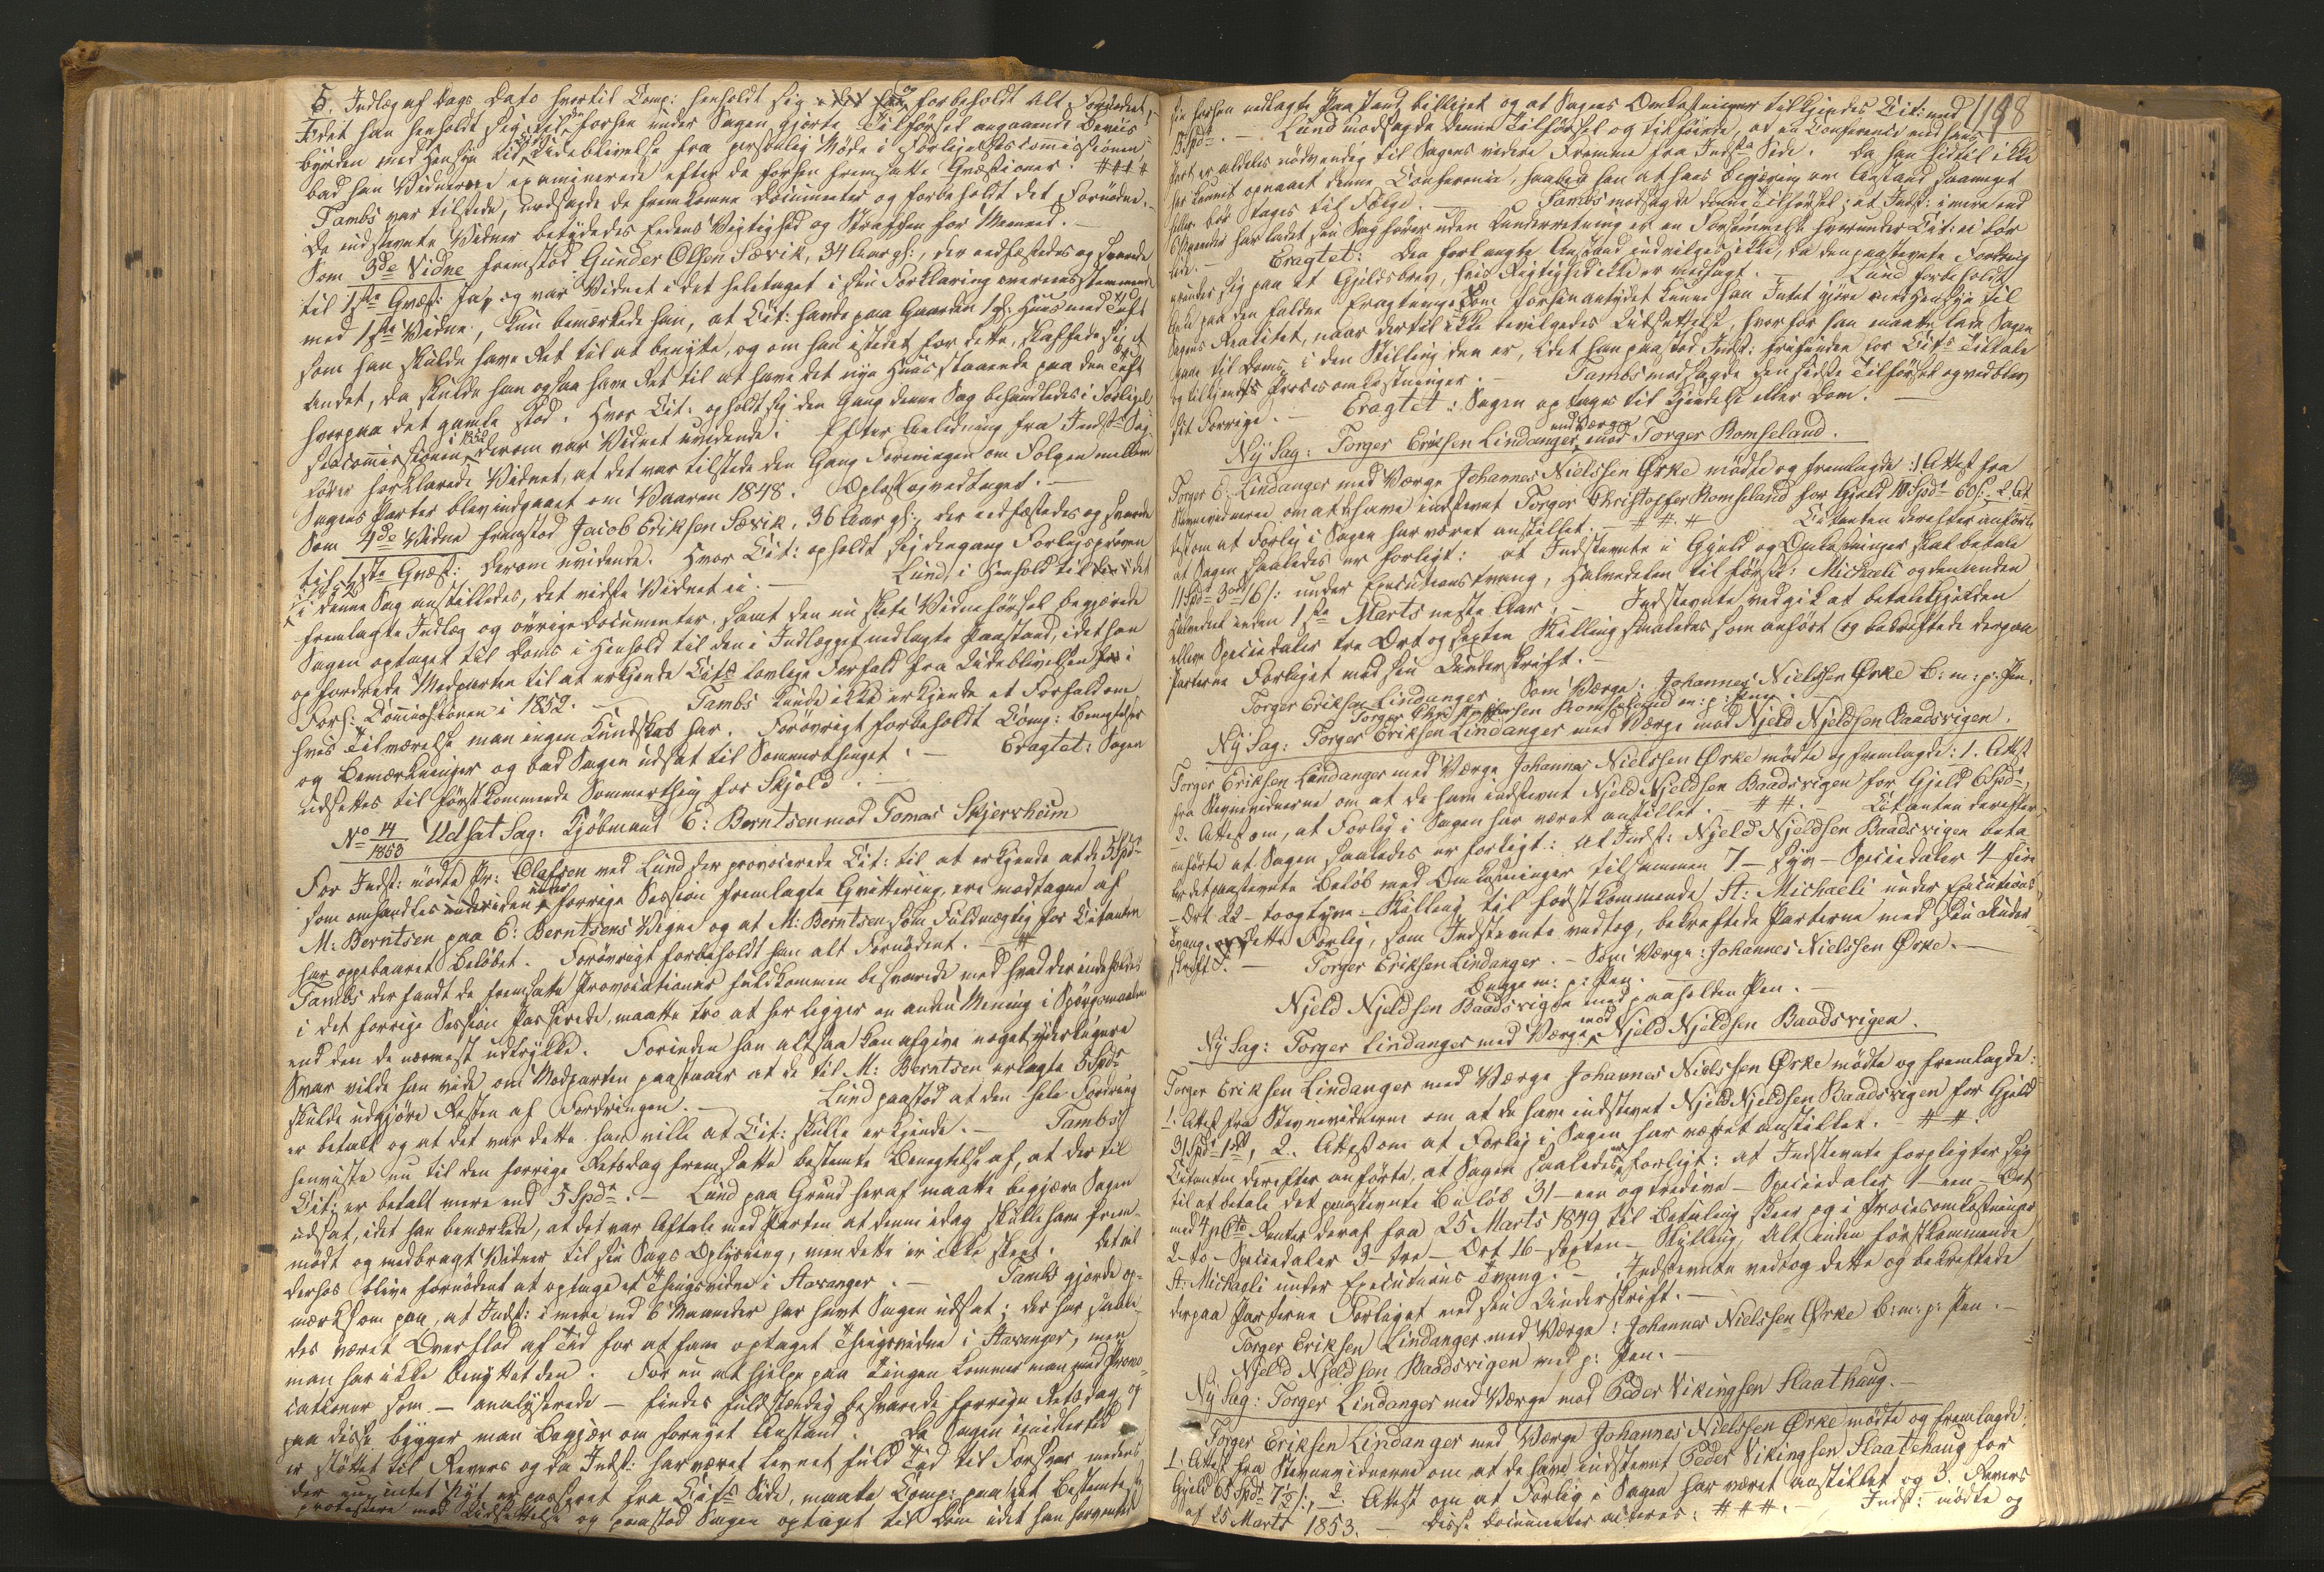 5. Indlæg af Dags Dato hvortil Comp: henholdt sig forbeholdt alt Fornødent,
Idet han henholdt sig til forhen under Sagen gjorte Tilførsel angaaende Beviis-
byrden med Hensyn til Cit Udeblivelse fra personlig Møde i Forligelsescomissionen,
bad han Vidnerne examinerede efter de forhen fremsatte Qvæstioner. ####
Tambs var tilstede, modsagde de fremkomne Documenter og forbeholdt det Fornødne. -
De indstevnte Vidner betydedes Eedens Vigtighed og Straffen for Meeneed. -
Som 3de Vidne fremstod Gunder Olsen Sævik, 34 Aar gl:, der eedfæstedes og svarede
til 1ste Qvæst: Ja, og var Vidnet i det heletaget i sin Forklaring overeensstemmende
med 1ste Vidne, kun bemærkede han, at Cit: havde paa Gaarden 1 gl: Huus med Toft
som han skulde have Ret til at benytte, og om han istedet for dette, skaffede sig et
Andet, da skulde han ogsaa have Ret til at have det nye Huus, staaende paa den Toft
hvorpaa det gamle stod. Hvor Cit: opholdt sig den Gang denne Sag behandledes i Forligel-
sescomissionen i 1852 derom var Vidnet uvidende. Efter Anledning fra Indst: Sag-
fører forklarede Vidnet, at det var tilstede den Gang Foreningen om Folgen mellem
Sagens Parter blev indgaaet om Vaaren 1848. Oplæst og vedtaget. -
Som 4de Vidne fremstod Jacob Eriksen Sævik, 36 Aar gl:, der eedfæstedes og svarede
til 1ste Qvæst: Derom uvidende. Hvor Cit: opholdt sig dengang Forligsprøven
i 1852 i denne Sag anstilledes, det vidste Vidnet ei. - Lund, i Henhold til det
fremlagte Indlæg og øvrige Documenter, samt den nu skete Vidneførsel begjærede
Sagen optaget til Doms i Henhold til den i Indlægget nedlagte Paastand, idet han
opfordrede Modparten til at erkjende Cits lovlige Forfald fra Udeblivelsen i
Forl: Comissionen i 1852. - Tambs kunde ikke erkjende et Forfald om
hvis Tilværelse man ingen Kundskab har. Forøvrigt forbeholdt Comp: Benegtelser
og Bemærkninger og bad Sagen udsat til Sommerthinget. - Eragtet: Sagen
udsettes til førstkommende Sommerthing for Skjold. -
No 14/1853 Udsat Sag: Kjøbmand E: Berntsen mod Tomas Skjersheim
For Indst: mødte Pr: Olafsen ved Lund der provocerede Cit: til at erkjende at de 5 Spd
som omhandles i den under forrige Session fremlagte Qvittering, ere modtagne af
M: Berntsen paa E: Berntsens Vegne og at M: Berntsen som Fuldmægtig for Citanten
har oppebaaret Beløbet. Forøvrigt forbeholdt han alt Fornødent. - #
Tambs der fandt de fremsatte Provocationer fuldkommen besvarede med hvad der indeholdes
i det forrige Session Passerede, maatte tro at her ligger en anden Mening i Spørgsmaalene
end den de nærmest udtrykke. Forinden han altsaa kan afgive noget yderligere
Svar vilde han vide om Modparten paastaaer at de til M: Berntsen erlagte 5 Spd
skulde udgjøre Resten af Fordringen. - Lund paastod at den hele Fordring
er betalt og at det var dette han ville at Cit: skulle erkjende. - Tambs
henviste nu til den forrige Retsdag fremsatte bestemte Benegtelse af, at der til
Cit: er betalt mere end 5 Spd. - Lund paa Grund heraf maatte begjære Sagen
udsat, idet han bemærkede, at det var Aftale med Parten at denne idag skulle have frem-
mødt og medbragt Vidner til sin Sags Oplysning, men dette er ikke skeet. Det vil
derhos blive fornødent at optage et Thingsvidne i Stavanger. - Tambs gjorde op-
mærksom paa, at Indst: i mere end 6 Maaneder har havt Sagen udsat; der har saale-
des været Overflod af Tid for at faae optaget Thingsvidne i Stavanger, men
man har ikke benyttet den. For nu at hjelpe paa Tingen kommer man med Provo-
cationer som - analyserede - findes fuldstændig besvarede forrige Retsdag og
paa disse bygger man Begjær om fornyet Anstand. Da Sagen imidlertid
er støttet til Revers og da Indst: har været levnet fuld Tid til Forsvar medens
der nu intet Nyt er passeret fra Cits Side, maatte Comp: paa det Bestemteste
protestere mod Udsettelse og paastod Sagen optaget til Dom idet han forventer
1198
sin forhen nedlagte Paastand billiget og at Sagens Omkostninger tilkjendes Cit: med
15 Spd. - Lund modsagde denne Tilførsel og tilføiede, at en Conference med hans
Part er aldeles nødvendig til Sagens videre Fremme fra Indsts Side. Da han hidtil ikke
har kunnet opnaaet denne Conference, haabede han at hans Begjæring om Anstand saameget
heller bør tages til Følge. - Tambs modsagde denne Tilførsel; at Indst: i mere end
har ladet sin Sagfører uden Underretning er en Forsømmelse hvorunder Cit: ei bør
lide. - Eragtet: Den forlangte Anstand indvilges ikke, da den paastevnte Fordring
grunder sig paa et Gjeldsbrev, hvis Rigtighed ikke er modsagt. - Lund forbeholdt
Anke paa den faldne Eragtning. Som forhen antydet kunne han Intet gjøre med Hensyn til
Sagens Realitet, naar dertil ikke bevilgedes Udsettelse, hvorfor han maatte lade Sagen
gaae til Doms i den Stilling den er, idet han paastod Indst: frifunden for Cits Tiltale
og tilkjendt Procesomkostninger. - Tambs modsagde den sidste Tilførsel og vedblev
sit Forrige. - Eragtet: Sagen optages til Kjendelse eller Dom. -
Ny Sag: Torger Eriksen Lindanger med Værge mod Torger Romseland.
Torger E. Lindanger med Værge Johannes Nielssen Ørke mødte og fremlagde: 1 Attest fra
Stevnevidnerne om at de have indstevnt Torger Christoffer Romseland for Gjeld 10 Spd 60 s. 2 At-
test om at Forlig i Sagen har været anstillet. - ##. Citanten derefter anførte
at Sagen saaledes er forligt: at Indstevnte i Gjeld og Omkostninger skal betale
11 Spd 3 ort 16 s: under Executionstvang, Halvedelen til først: Michaeli og den anden
Halvdeel inden 1ste Marts neste Aar. - Indstevnte vedgik at betale Gjelden
elleve Speciedaler tre Ort og sexten Skilling saaledes som anført og bekreftede derpaa
Parterne Forliget med sin Underskrift. -
Torger Eriksen Lindanger. Som Værge: Johannes Nielssen Ørke B: m: p: Pen.
Torger Christoffersen Romseland m: p: Pen.
Ny Sag: Torger Eriksen Lindanger med Værge mod Njeld Njeldsen Baadsvigen.
Torger Eriksen Lindanger med Værge Johannes Nielssen Ørke mødte og fremlagde: 1. Attest
fra Stevnevidnerne om at de have indstevnt Njeld Njeldsen Baadsvigen for Gjeld 6 Spd,
2. Attest om, at Forlig i Sagen har været anstillet. - ##. - Citanten derefter
anførte at Sagen saaledes er forligt: At Indst: Njeld Njeldsen Baadsvigen beta-
ler det paastevnte Beløb med Omkostninger tilsammen 7 - syv - Speciedaler 4 - fire
- Ort 22 - toogtyve - Skilling til førstkommende St: Michaeli under Executions
Tvang. Dette Forlig, som Indstevnte vedtog, bekreftede Parterne med sin Under-
skrift. - Torger Eriksen Lindanger. - Som Værge: Johannes Nielssen Ørke. -
Begge m: p: Pen.
Njeld Njeldsen Baadsvigen med paaholden Pen. -
Ny Sag: Torger Lindanger med Værge mod Njeld Njeldsen Baadsvigen.
Torger Eriksen Lindanger med Værge Johannes Nielssen Ørke mødte og fremlagde:
1. Attest fra Stevnevidnerne om at de have indstevnt Njeld Njeldsen Baadsvigen for Gjeld
31 Spd 1 ort, 2. Attest om at Forlig i Sagen har været anstillet. - ##.
Citanten derefter anførte, at Sagen saaledes er forligt: at Indstevnte forpligter sig
til at betale det paastevnte Beløb 31 - een og tredive - Speciedaler 1 - een - Ort
med 4 pCt Renter deraf fra 25 Marts 1849 til Betaling skeer og i Procesomkostninger
2 - to - Speciedaler 3 - tre - Ort 16 - sexten - Skilling, Alt inden førstkommende
St: Michaeli under Executions Tvang. - Indstevnte vedtog dette og bekreftede
derpaa Parterne Forliget med sin Underskrift. -
Torger Eriksen Lindanger med Værge: Johannes Nielssen Ørke B: m: p: Pen. -
Njeld Njeldsen Baadsvigen med p: Pen. -
Ny Sag: Torger Lindanger med Værge mod Peder Vikingsen Slaathaug. -
Torger Eriksen Lindanger med Værge Johannes Nielssen Ørke mødte og fremlagde:
1. Attest fra Stevnevidnerne om at de have indstevnt Peder Vikingsen Slaatehaug for
Gjeld 65 Spd, 2. Attest om at Forlig i Sagen har været anstillet og 3. Revers
af 25 Marts 1853. - Disse Documenter acteres: ###. - Indst: mødte og